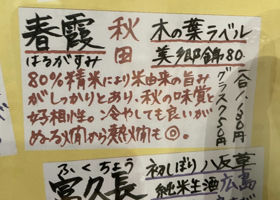 春霞 秋田 木の葉ラベル
はるがすみ 美郷錦80
80%精米により米由来の旨み
がしっかりとあり、秋の味覚と
好相性。冷やしても良いが
ぬる燗から熱燗も◎。
一合
グラス
ふくちょう 初しぼり 八反草
富久長 純米生酒 広島